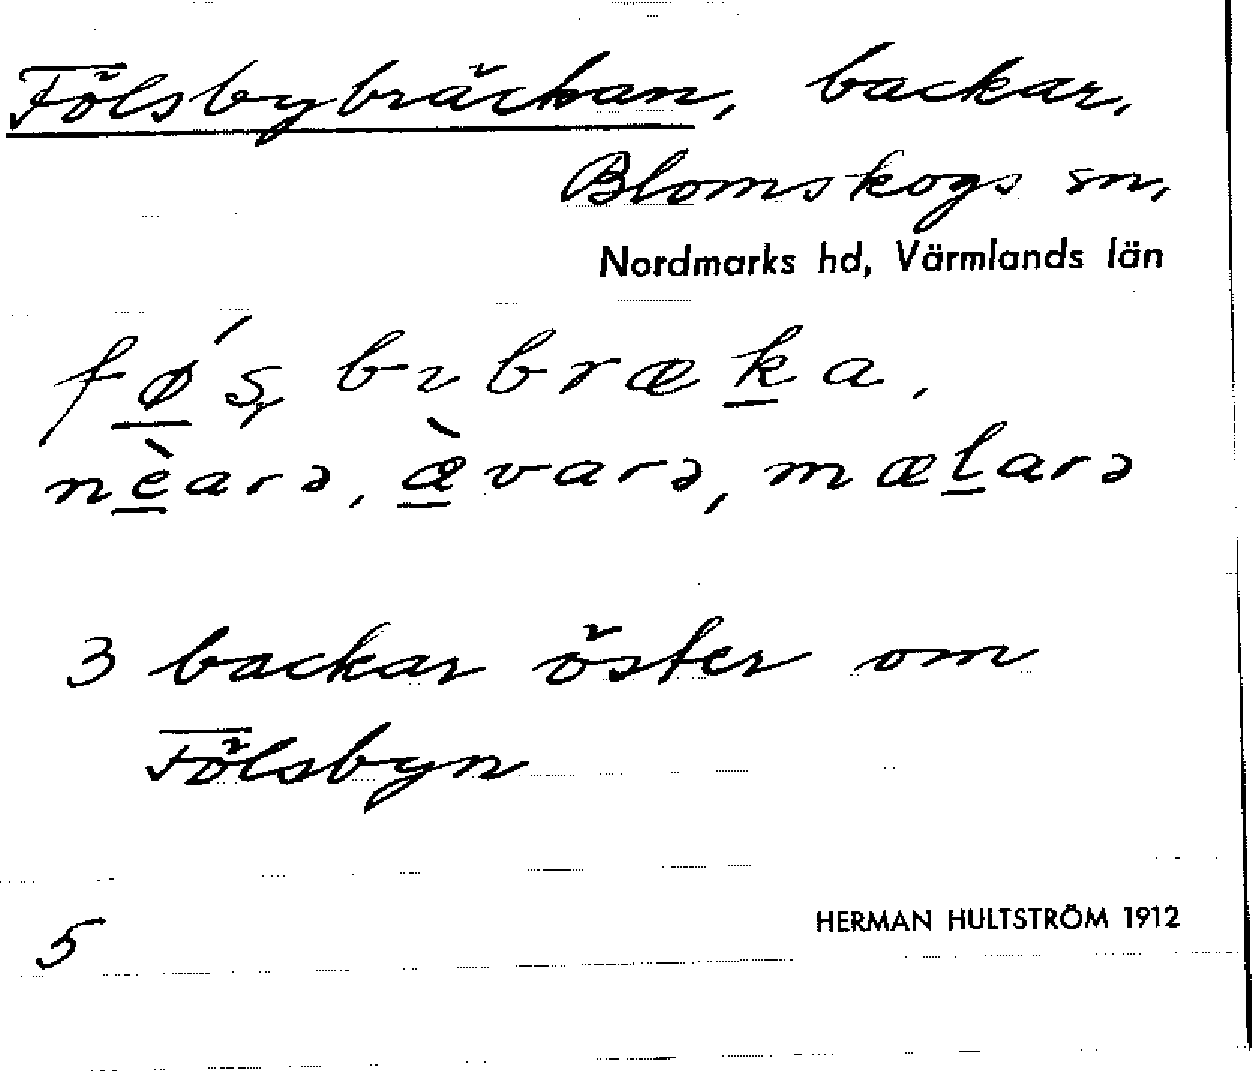 Fölsbybräckan, backar,
Blomskogs sn,
Nordmarks hd, Värmlands län
fǿ̲ʂ bɩbræk̲a,
nè̲arə, æ̲̀varə, mæl̲arə
3 backar öster om
Fölsbyn
5 HERMAN HULTSTRÖM 1912